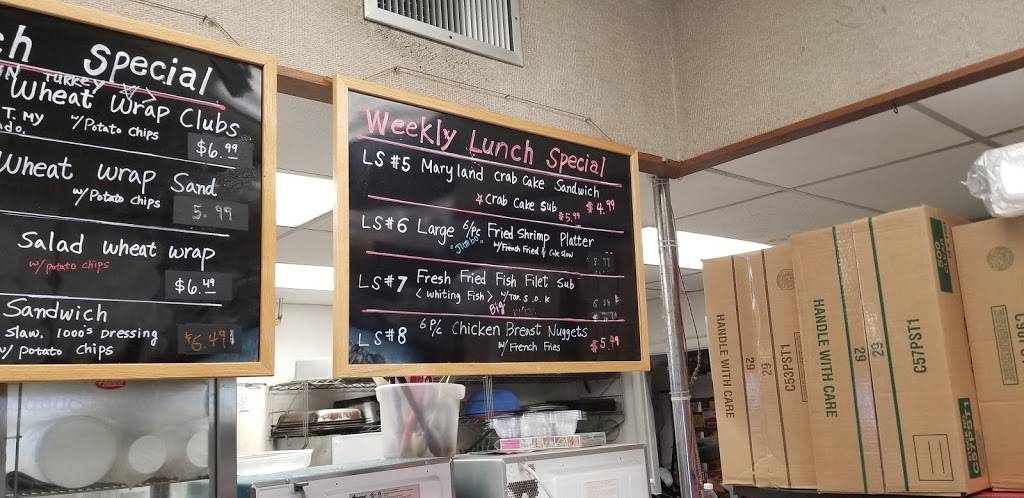 ch Special
TURKEY
Wheat Wrap Clubs
T. MY
w/Potato chips
$6.99
Wheat wrap Sand
w/Potato chips
5.99
Salad wheat wrap
w/potato chips
$6.49
Sandwich
Slaw. 1000's Dressing
w/ potato chips
$6.49
Weekly Lunch Special
LS #5 Maryland crab Cake Sandwich
$4.99
* Crab Cake Sub
$5.99
LS #6 Large 6/pc Fried Shrimp Platter
"Jumbo"
w/French Fried & Cole Slaw
LS #7 Fresh Fried Fish Filet Sub
< whiting Fish > w/Tar. S. O. K
Big
LS #8 6 P/c Chicken Breast Nuggets
w/ French Fries
$5.99
HANDLE WITH CARE
29
29
C53PST1
HANDLE WITH CARE
29
29
C57PST1